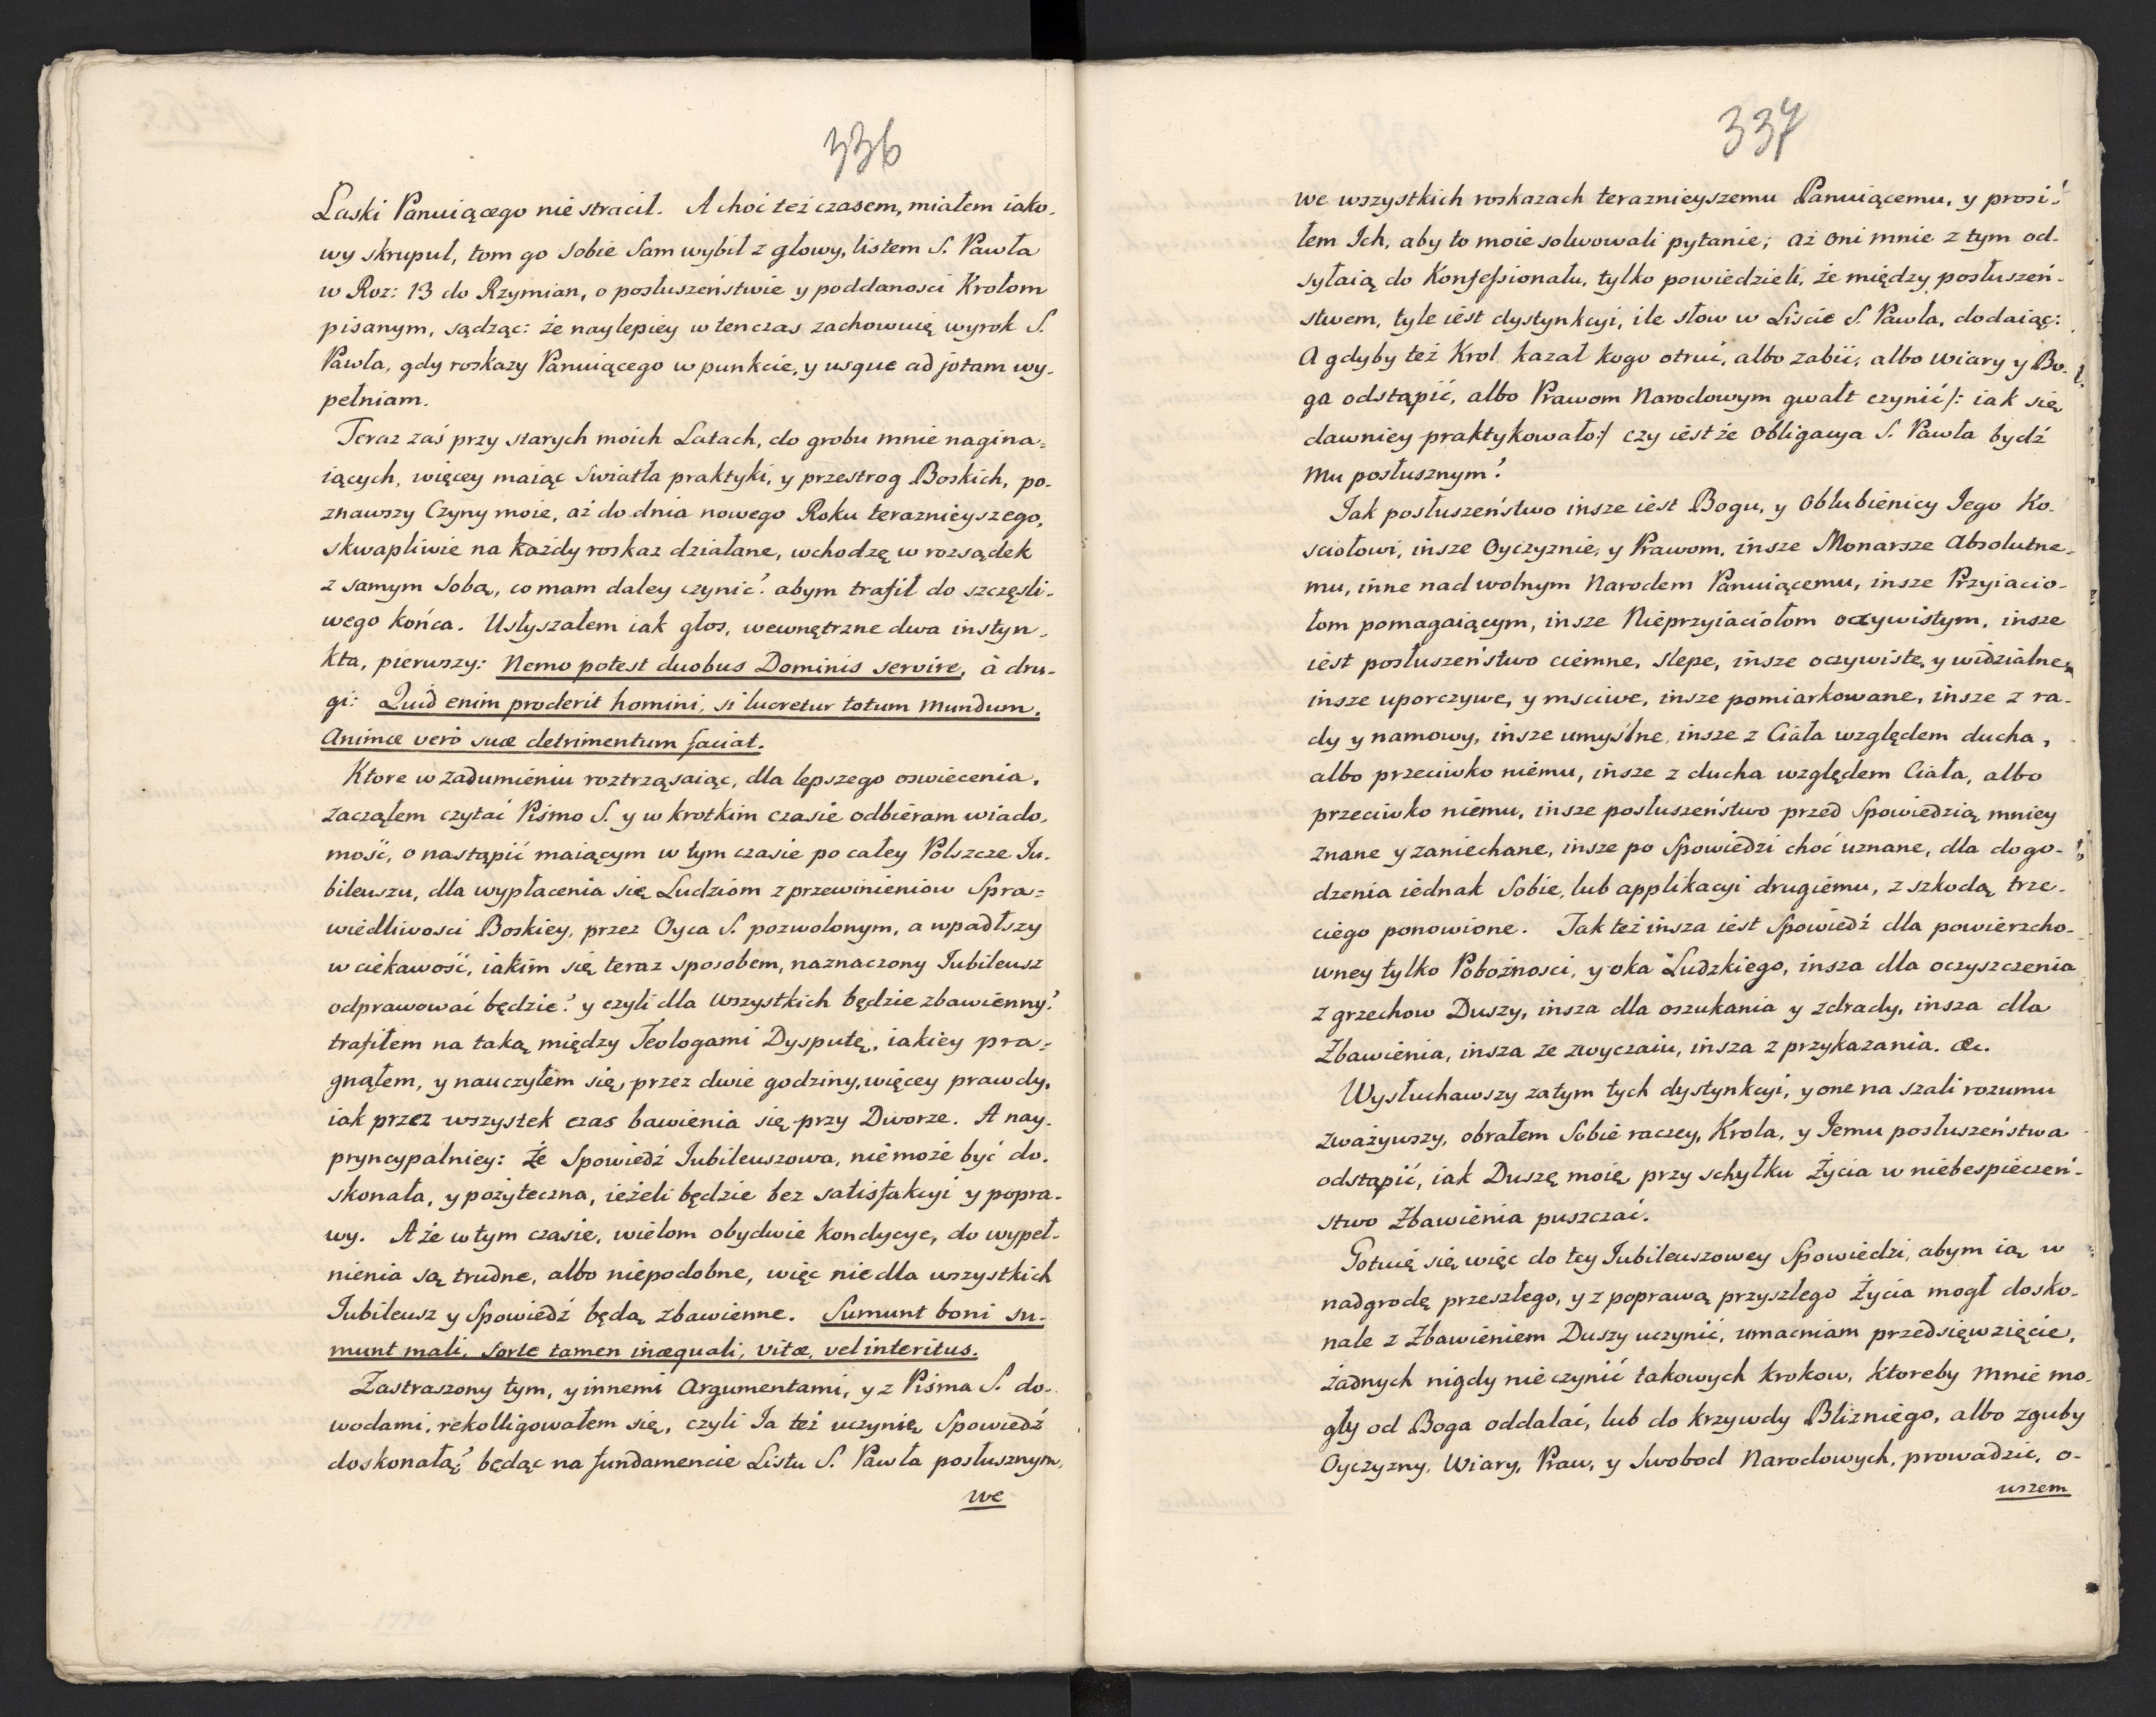 336
Łaski Panuiącego nie stracił. A choć też czasem, miałem iako-
wy skrupuł, tom go sobie sam wybił z głowy, listem S. Pawła
w Roz: 13 do Rzymian, o posłuszeństwie y poddanosci Krolom
pisanym, sądząc: że naylepiey w ten czas zachowuię wyrok S.
Pawła, gdy roskazy Panuiącego w punkcie, y usque ad jotam wy-
pełniam.
Teraz zaś przy starych moich Latach, do grobu mnie nagina-
iących, więcey maiąc swiatła praktyki, y przestrog Boskich, po-
znawszy Czyny moie, aż do dnia nowego Roku teraznieyszego,
skwapliwie na każdy roskaz działane, wchodzę w rozsądek
z samym sobą, co mam daley czynić? abym trafił do szczęsli-
wego końca. Usłyszałem iak głos, wewnętrzne dwa instyn-
kta, pierwszy: Nemo potest duobus Dominis servire, à dru-
gi: Quid enim proderit homini, si lucretur totum mundum,
Animæ verò suæ detrimentum faciat.
Ktore w zadumieniu roztrząsaiąc, dla lepszego oswiecenia,
zacząłem czytać Pismo S. y w krotkim czasie odbieram wiado-
mość, o nastąpić maiącym w tym czasie po całey Polszcze Ju-
bileuszu, dla wypłacenia się Ludziom z przewinieniow Spra-
wiedliwosci Boskiey, przez Oyca S. pozwolonym, a wpadłszy
w ciekawość, iakim się teraz sposobem, naznaczony Jubileusz
odprawować będzie? y czyli dla wszystkich będzie zbawienny?
trafiłem na taką między Teologami Dysputę, iakiey pra-
gnąłem, y nauczyłem się przez dwie godziny, więcey prawdy,
iak przez wszystek czas bawienia się przy Dworze. A nay-
pryncypalniey: że Spowiedź Jubileuszowa, nie może być do-
skonała, y pożyteczna, ieżeli będzie bez satisfakcyi y popra-
wy. A że w tym czasie, wielom obydwie kondycye, do wypeł-
nienia są trudne, albo niepodobne, więc nie dla wszystkich
Jubileusz y Spowiedź będą zbawienne. Sumunt boni su-
munt mali, sorte tamen inæquali, vitæ, vel interitus.
Zastraszony tym, y innemi Argumentami, y z Pisma S. do-
wodami, rekolligowałem się, czyli Ja też uczynię Spowiedź
doskonałą? będąc na fundamencie Listu S. Pawła posłusznym,
we
337
we wszystkich roskazach teraznieyszemu Panuiącemu, y prosi-
łem Ich, aby to moie solwowali pytanie; aż oni mnie z tym od-
syłaią do Konfessionału, tylko powiedzieli, że między posłuszeń-
stwem, tyle iest dystynkcyi, ile słow w Liscie S. Pawła, dodaiąc:
A gdyby też Krol kazał kogo otruć, albo zabić, albo wiary y Bo-
ga odstąpić, albo Prawom Narodowym gwałt czynić/: iak się
dawniey praktykowało:/ czy iest że Obligacya S. Pawła bydź
mu posłusznym?
Jak posłuszeństwo insze iest Bogu, y Oblubienicy Jego Ko-
sciołowi, insze Oyczyznie, y Prawom, insze Monarsze Absolutne-
mu, inne nad wolnym Narodem Panuiącemu, insze Przyiacio-
łom pomagaiącym, insze Nieprzyiaciołom oczywistym, insze
iest posłuszeństwo ciemne, slepe, insze oczywiste, y widzialne,
insze uporczywe, y msciwe, insze pomiarkowane, insze z ra-
dy y namowy, insze umyślne, insze z Ciała względem ducha,
albo przeciwko niemu, insze z ducha względem Ciała, albo
przeciwko niemu, insze posłuszeństwo przed Spowiedzią mniey
znane y zaniechane, insze po Spowiedzi choć uznane, dla dogo-
dzenia iednak Sobie, lub applikacyi drugiemu, z szkodą trze-
ciego ponowione. Jak też insza iest Spowiedź dla powierzcho-
wney tylko Pobożnosci, y oka Ludzkiego, insza dla oczyszczenia
z grzechow Duszy, insza dla oszukania y zdrady, insza dla
Zbawienia, insza ze zwyczaiu, insza z przykazania. &c.
Wysłuchawszy zatym tych dystynkcyi, y one na szali rozumu
zważywszy, obrałem Sobie raczey, Krola, y Jemu posłuszeństwa
odstąpić, iak Duszę moię przy schyłku Życia w niebespieczeń-
stwo Zbawienia puszczać.
Gotuię się więc do tey Jubileuszowey Spowiedzi, abym ią w
nadgrodę przeszłego, y z poprawą przyszłego Życia mogł dosko-
nale z Zbawieniem Duszy uczynić, umacniam przedsięwzięcie,
żadnych nigdy nie czynić takowych krokow, ktoreby mnie mo-
gły od Boga oddalać, lub do krzywdy Blizniego, albo zguby
Oyczyzny, Wiary, Praw, y Swobod Narodowych, prowadzić, o-
wszem